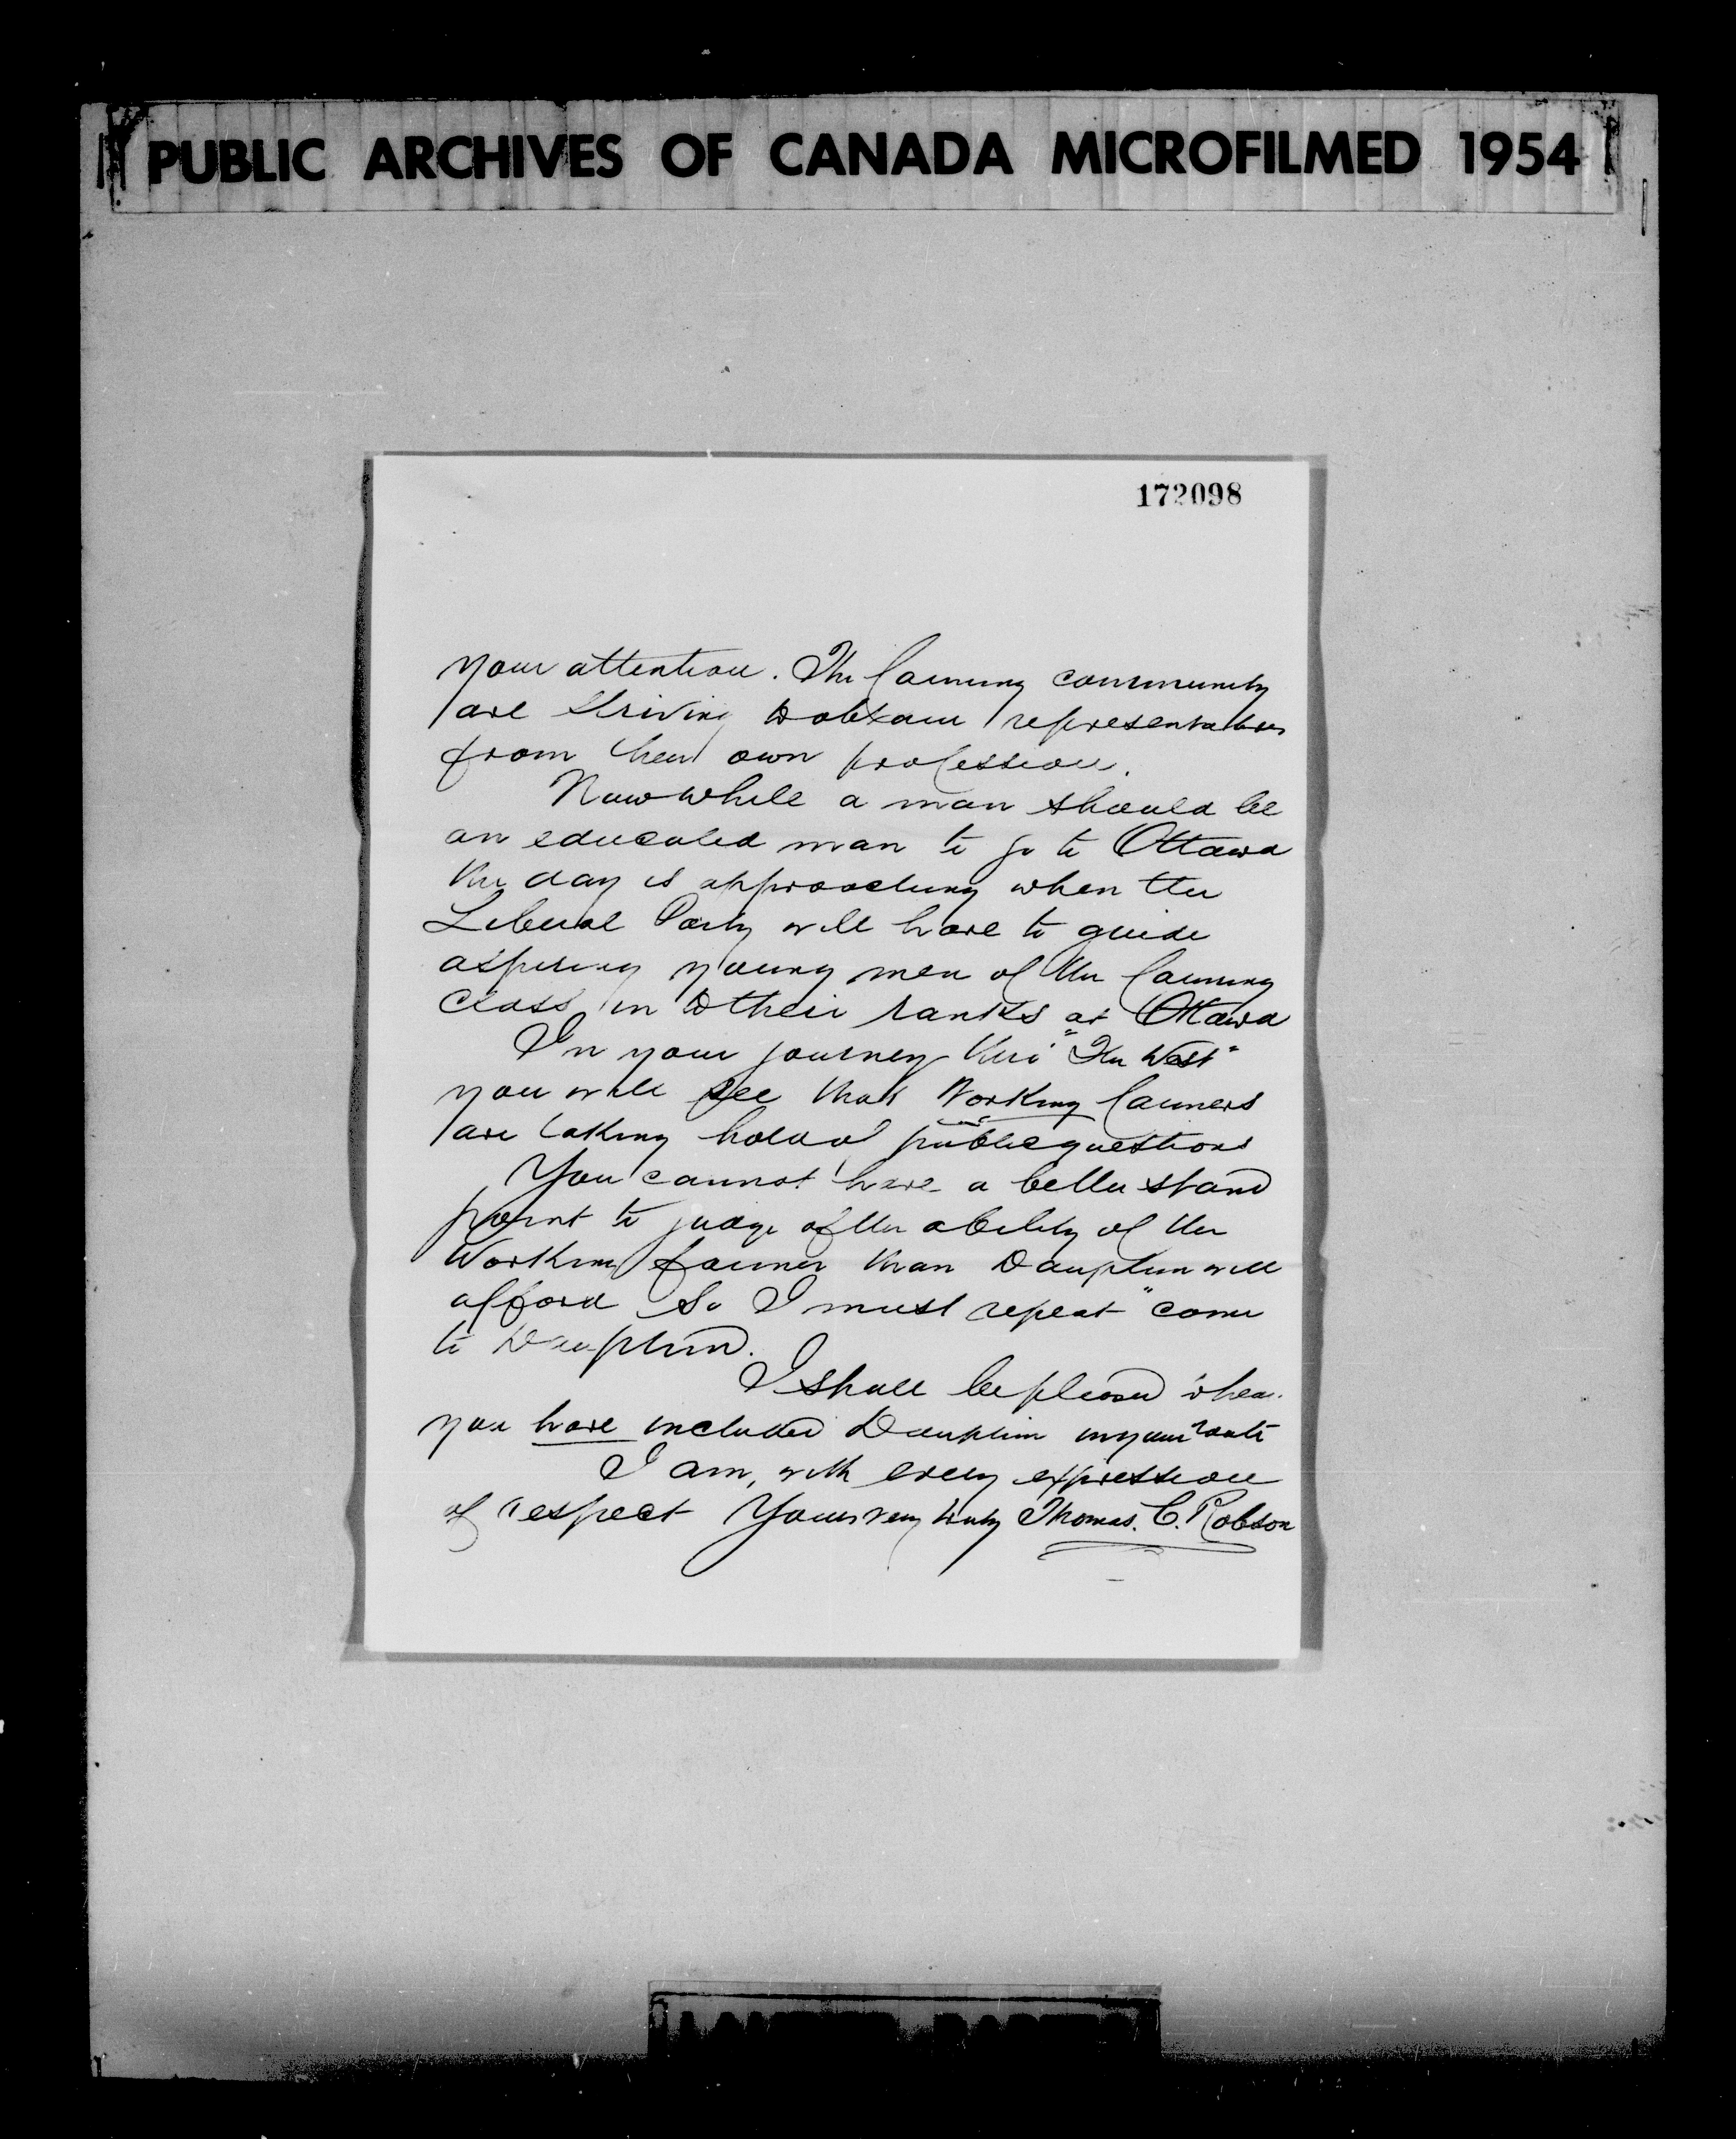 PUBLIC ARCHIVES OF CANADA MICROFILMED 1954
172098
your attention. The farming community
are striving to obtain representatives
from their own profession.
Now while a man should be
an educated man to go to Ottawa
the day is approaching when the
Liberal Party will have to guide
aspiring young men of the farming
class in to their ranks at Ottawa
In your journey thro' "The West"
you will see that Working farmers
are taking hold of public questions
You cannot have a better stand
point to judge of the ability of the
Working farmer than Dauphin will
afford So I must repeat "come
to Dauphin.
I shall be pleased when
you have included Dauphin in your route
I am, with every expression
of respect Yours very truly Thomas. C. Robson